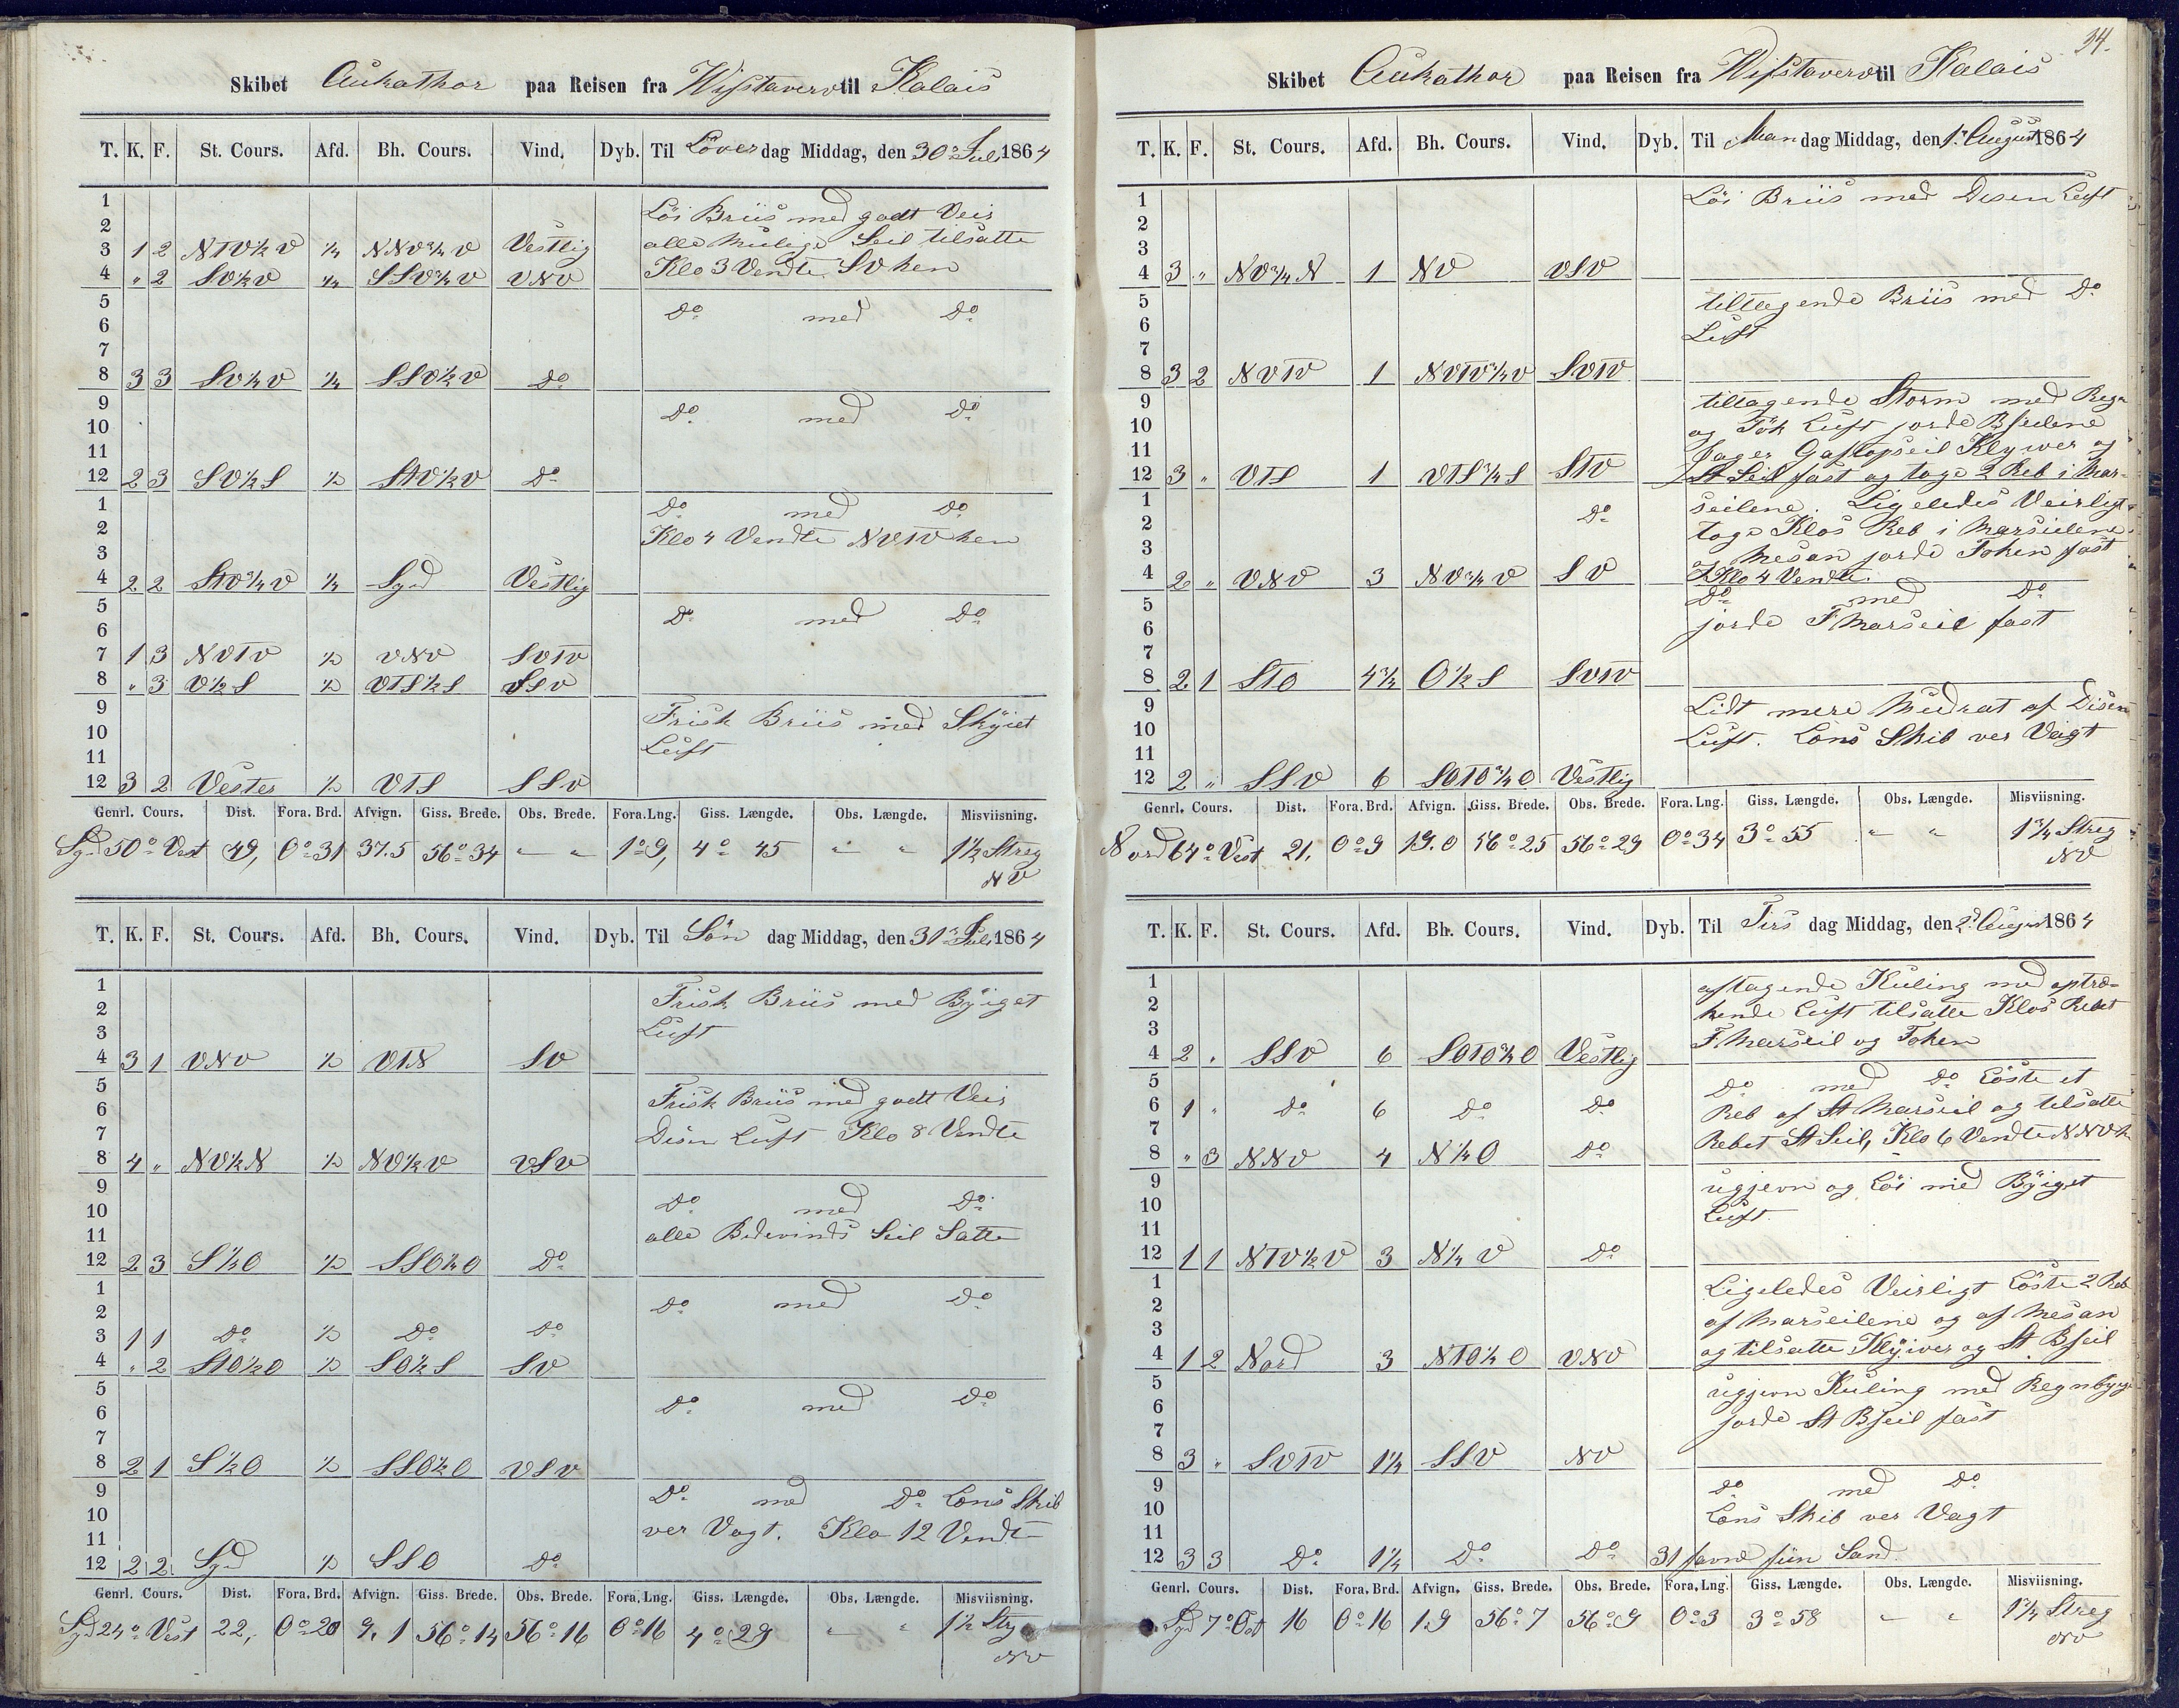 Skibet Aukathor paa Reisen fra Wifstaverv til Kalais
T. K. F. St. Cours. Afd. Bh. Cours. Vind. Dyb. Til Löverdag Middag, den 30te Juli 1864
1 Löi Briis med godt Veir
2
3 1 2 NTV½V ¼ NNV¾V Vestlig alle Mulige Seil tilsatte
4 " 2 SV½V ¼ SSV¾V VNV Klo 3 Vendte SV hen
5 Do med Do
6
7
8 3 3 SV¼V ¼ SSV½V Do
9 Do med Do
10
11
12 2 3 SV½S ½ STV½V Do
1 Do med Do
2 Klo 4 Vendte NVTV hen
3
4 2 2 STV¾V ¼ Syd Vestlig
5 Do med Do
6
7 1 3 NVTV ½ VNV SVTV
8 " 3 V½S ½ VTS½S SSV
9 Frisk Briis med Skÿiet
10 Luft
11
12 3 2 Vester ½ VTS SSV
Genrl. Cours. Dist. Fora. Brd. Afvign. Giss. Brede. Obs. Brede. Fora. Lng. Giss. Længde. Obs. Længde. Misviisning.
Syd 50° Vest 49, 0°31 37.5 56°34 " " 1°9, 4°45 " " 1½ Streg
NV
T. K. F. St. Cours. Afd. Bh. Cours. Vind. Dyb. Til Söndag Middag, den 31te Juli 1864
1 Frisk Briis med Bÿiget
2 Luft
3
4 3 1 VNV ½ VTN SV
5 Frisk Briis med godt Veir
6
7 Disen Luft Klo 8 Vendte
8 4 " NV½N ½ NV½V VSV
9
10 Do med Do
11 alle Bidevinds Seil Satte
12 2 3 S½O ½ SSO½O Do
1 Do med Do
2
3 1 1 Do ½ Do Do
4 " 2 STO½O ½ SO½S SV
5 Do med Do
6
7
8 2 1 S½O ½ SSO½O VSV
9 Do med Do Lons Skib
10 ver Vagt. Klo 12 Vendte
11
12 2 2 Syd ½ SSO Do
Genrl. Cours. Dist. Fora. Brd. Afvign. Giss. Brede. Obs. Brede. Fora. Lng. Giss. Længde. Obs. Længde. Misviisning.
Syd 24° Vest 22, 0°20 9.1 56°14 56°16 0°16 4°29 " " 1½ Streg
NV
34.
Skibet Aukathor paa Reisen fra Wifstaverv til Kalais
T. K. F. St. Cours. Afd. Bh. Cours. Vind. Dyb. Til Mandag Middag, den 1te August 1864
1 Löi Briis med Disen Luft
2
3
4 3 " NV¾N 1 NV VSV
5 tiltagende Briis med Do
6 Luft
7
8 3 2 NVTV 1 NVTV¾V SVTV
9 tiltagende Storm med Regn
10 og Tÿk Luft jorde Bseilene
11 Jager Gaftopseil Klywer og
12 3 " VTS 1 VTS¾S STV St Seil fast og toge 2 Reb i Mar-
1 Do seilene. Ligeledes Veirligt
2 toge Klos Reb i Marseilene
3 og Mesan jorde Foken fast
4 2 " VNV 3 NV¾V SV Klo 4 Vendte.
5 Do med Do
6 jorde F Marseil fast
7
8 2 1 STO 4¾ O½S SVTV
9 Lidt mere Mudrat af Disen
10 Luft. Lons Skib ver Vagt
11
12 2 " SSV 6 SOTO¾O Vestlig
Genrl. Cours. Dist. Fora. Brd. Afvign. Giss. Brede. Obs. Brede. Fora. Lng. Giss. Længde. Obs. Længde. Misviisning.
Nord 64° Vest 21, 0°9 19.0 56°25 56°29 0°34 3°55 " " 1¾ Streg
NV
T. K. F. St. Cours. Afd. Bh. Cours. Vind. Dyb. Til Tirsdag Middag, den 2d August 1864
1 aftagende Kuling med optræ-
2 kende Luft tilsatte Klos Rebet
3 F. Marseil og Foken
4 2 " SSV 6 SOTO¾O Vestlig
5 Do med Do Löste et
6 1 " Do 6 Do Do Reb af St Marseil og tilsatte
7 Rebet St Seil, Klo 6 Vendte NNV h
8 " 3 NNV 4 N¼O Do
9 ugjevn og Löi med Bÿiget
10 Luft.
11
12 1 1 NTV½V 3 N¼V Do
1 Ligeledes Veirligt Löste 2 Reb
2 af Marseilene og af Mesan
3 og tilsatte Klÿwer og St Bseil
4 1 2 Nord 3 NTO½O VNV
5 ugjevn Kuling med Regnbyge
6 jorde St Bseil fast
7
8 3 " SVTV 1¼ SSV NV
9 Do med Do
10 Lons Skib ver Vagt
11
12 3 3 Do 1¼ Do Do 31 favne fiin Sand.
Genrl. Cours. Dist. Fora. Brd. Afvign. Giss. Brede. Obs. Brede. Fora. Lng. Giss. Længde. Obs. Længde. Misviisning.
Syd 7° Ost 16 0°16 1.9 56°7 56°9 0°3 3°58 " " 1¾ Streg
NV